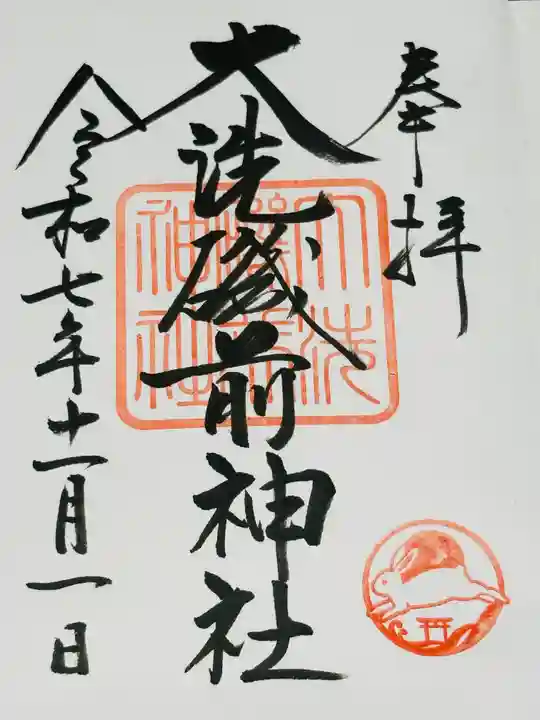 奉拝
大洗磯前神社
令和七年十一月一日
大洗
磯前
神社